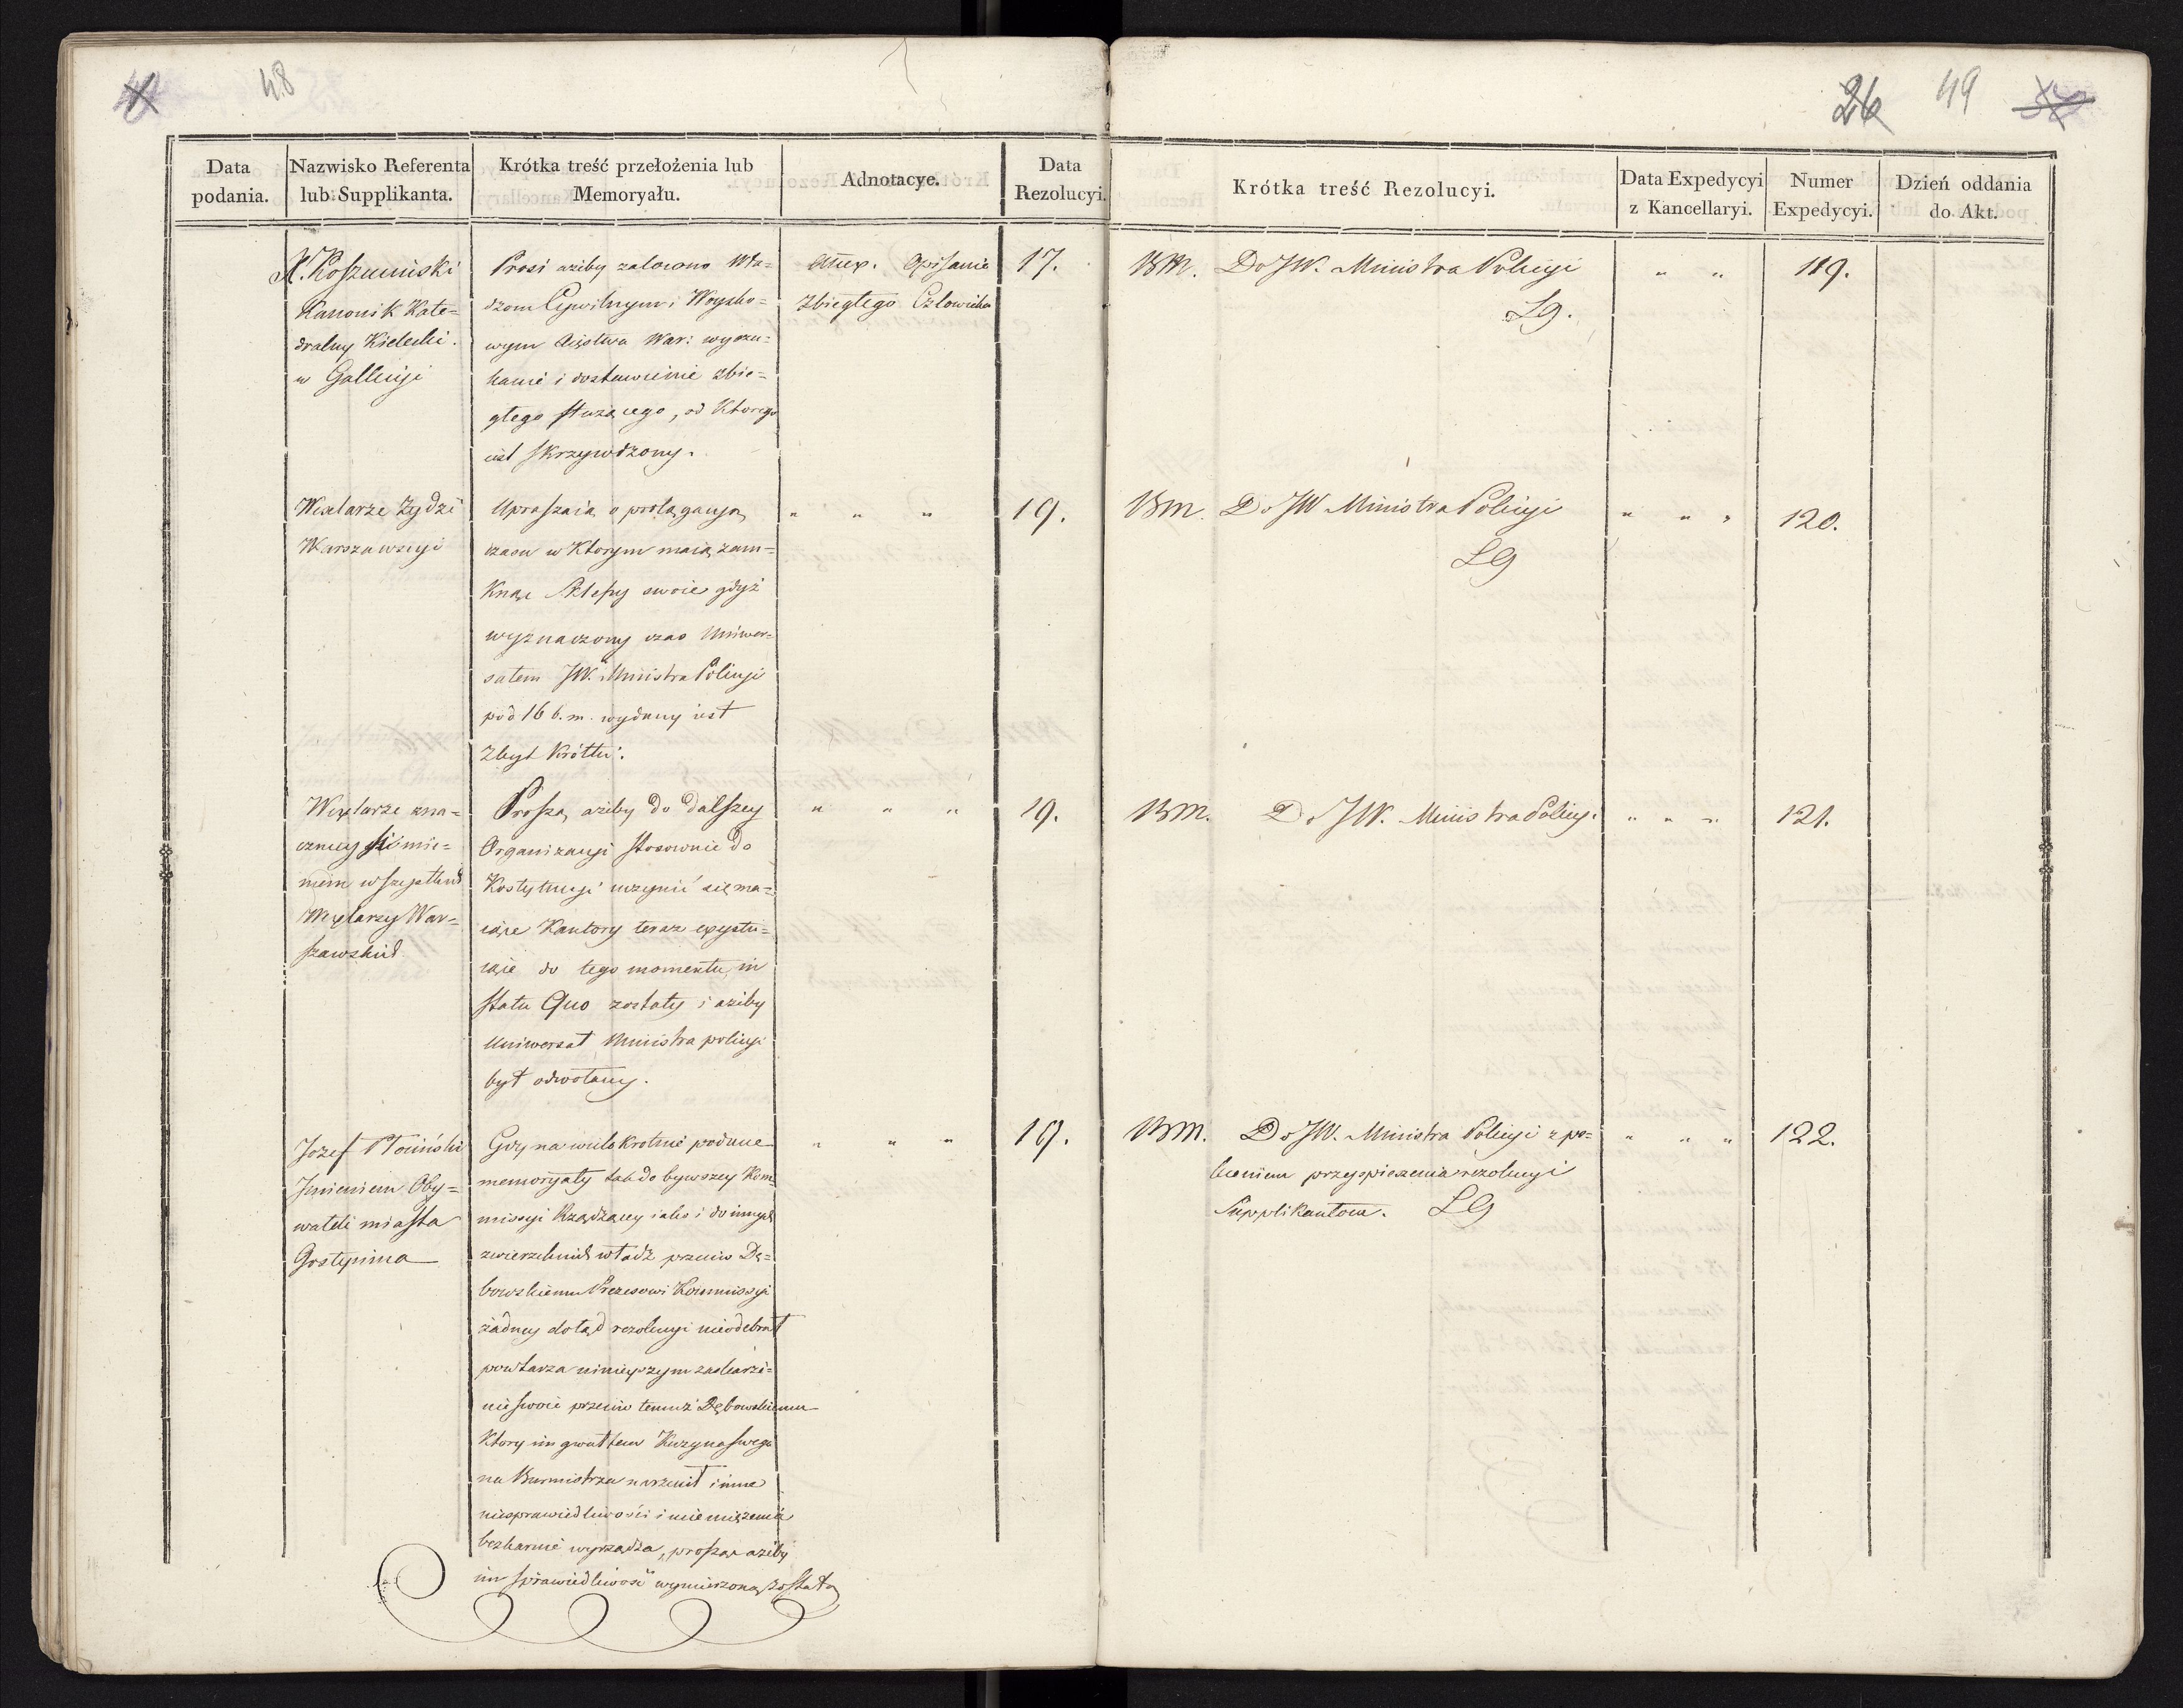 48
26 49
Data podania.
Nazwisko Referenta lub Supplikanta.
Krótka treść przełożenia lub Memoryału.
Adnotacye.
Data Rezolucyi.
Krótka treść Rezolucyi.
Data Expedycyi z Kancellaryi.
Numer Expedycyi.
Dzień oddania do Akt.
X. Koszuciński
Kanonik Kate=
dralny Kielecki.
w Gallicyi
Prosi ażeby zalecono Wła=
dzom Cywilnym i Woysko=
wym Xięstwa War: wyszu=
kanie i dostawienie zbie=
głego służącego, od Ktorego
iest skrzywdzony.
Opisanie
zbiegłego Człowieka
17.
BM. Do JW. Ministra Policyi
LG.
" "
119.
Wexlarze Żydzi
Warszawscy
Upraszaią o prolągacyą
czasu w Ktorym maią zam=
knąć Sklepy swoie gdyż
wyznaczony czas Uniwer=
sałem JW. Ministra Policyi
pod 16 b. m. wydany iest
zbyt krótki.
" " "
19.
BM. Do JW Ministra Policyi
LG
" " "
120.
Wexlarze zna=
cznieysi imie=
niem wszystkich
Wexlarzy War=
szawskich
Proszą, ażeby do dalszey
Organizacyi stosownie do
Kostytucyi uczynić się ma=
iące Kantory teraz exystu=
iące do tego momentu, in
statu Quo zostały i ażeby
Uniwersał Ministra policyi
był odwołany.
" " "
19.
BM. Do JW. Ministra Policyi
" " "
121.
Jozef
Jmieniem Oby=
wateli miasta
Gostynina
Gdy na wielokrotnie podane
memoryały tak do bywszey Kom=
missyi Rządzącey iako i do innych
zwierzchnich władz przeciw Dę=
bowskiemu Prezesowi Kommissyi
żadney dotąd rezolucyi nieodebrał
powtarza ninieyszym zaskarże=
nie swoie przeciw temuż Dębowskiemu
Ktory im gwałtem Kuzyna swego
na Burmistrza narzucił i inne
niesprawiedliwości i uciemiężenia
bezkarnie wyrządza, prosząc ażeby
im sprawiedliwość wymierzoną została
" " "
19.
BM. Do JW. Ministra Policyi z po=
leceniem przyspieszenia rezolucyi
Supplikantom. LG
" " "
122.